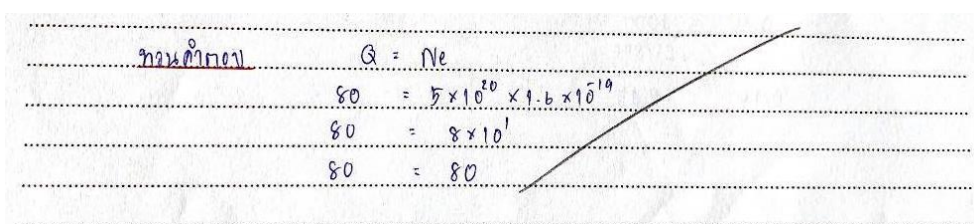 ทวนคำตอบ Q = Ne
80 = 5 × 10²⁰ × 1.6 × 10⁻¹⁹
80 = 8 × 10¹
80 = 80